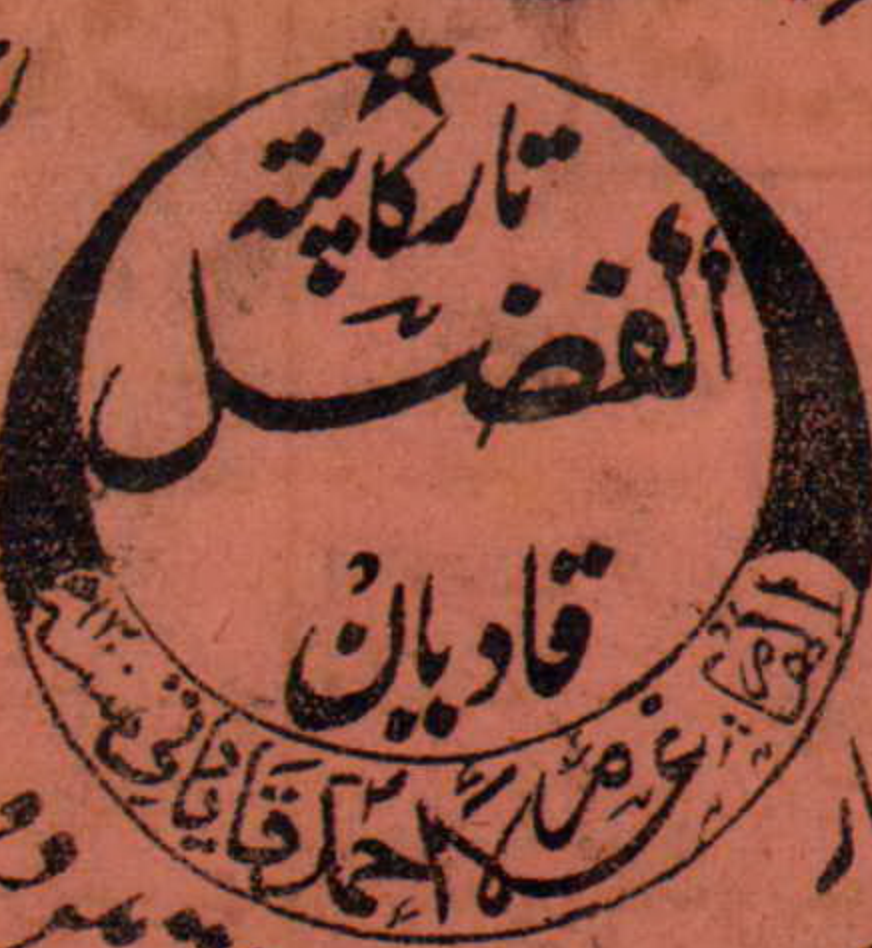 تار کا پتہ
الفضل
قادیان
غلام احمد قادیانی سنہ ۱۳۰۰